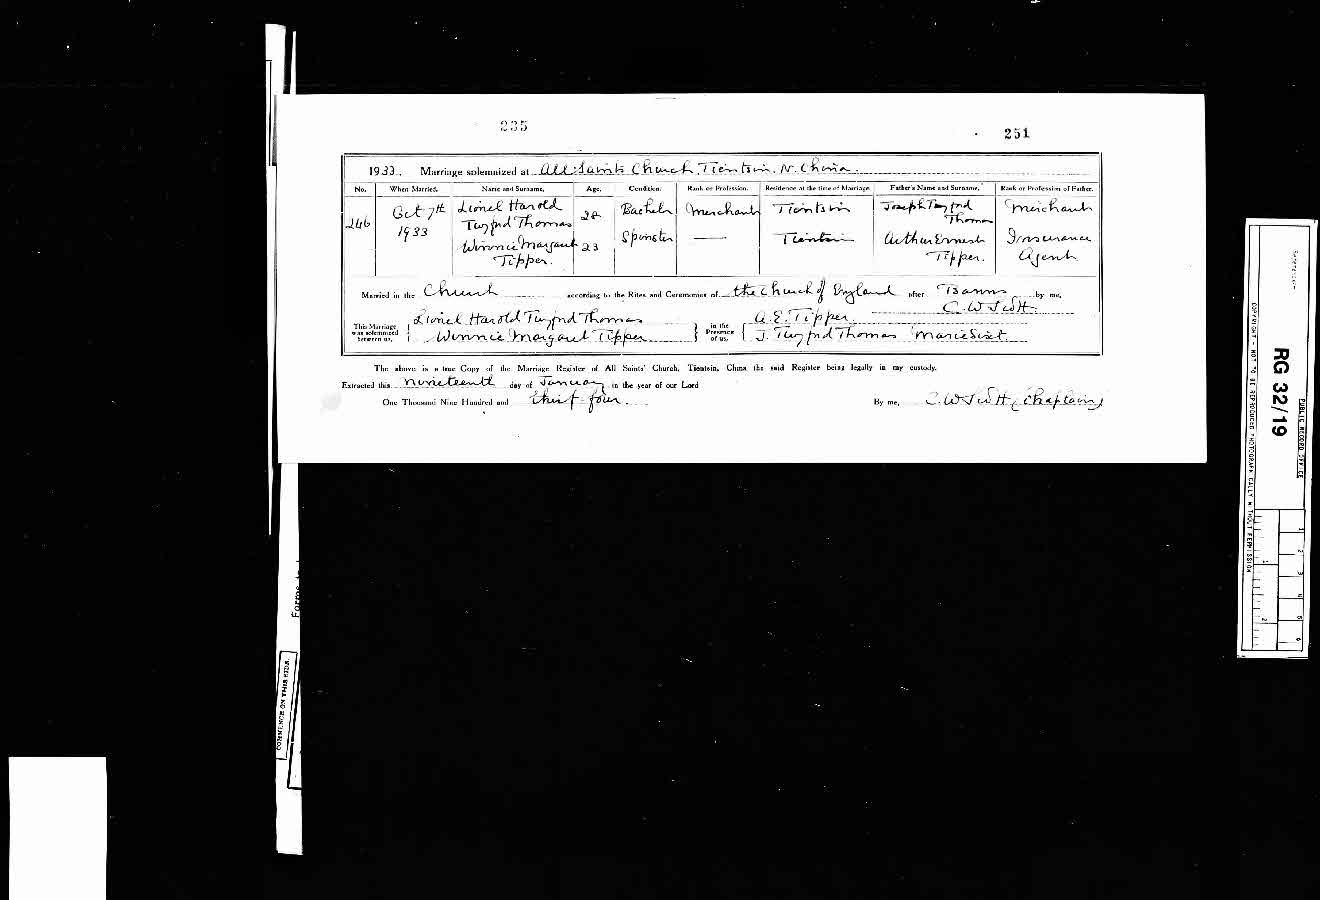 235
251
1933. Marriage solemnized at All Saints Church, Tientsin, N. China.
No. When Married. Name and Surname. Age. Condition. Rank or Profession. Residence at the time of Marriage. Father's Name and Surname. Rank or Profession of Father.
246 Oct 7th 1933 Lionel Harold Twyford Thomas 28 Bachelor Merchant Tientsin Joseph Twyford Thomas Merchant
Winnie Margaret Tipper. 23 Spinster — Tientsin Arthur Ernest Tipper. Insurance Agent
Married in the Church according to the Rites and Ceremonies of the Church of England after Banns by me,
C. W. Scott.
This Marriage was solemnized between us, Lionel Harold Twyford Thomas
Winnie Margaret Tipper
in the Presence of us, A. E. Tipper.
J. Twyford Thomas Marie
The above is a true Copy of the Marriage Register of All Saints' Church, Tientsin, China the said Register being legally in my custody.
Extracted this nineteenth day of January in the year of our Lord
One Thousand Nine Hundred and thirty-four.
By me, C. W. Scott (Chaplain)
PUBLIC RECORD OFFICE
RG 32/19
COPYRIGHT - NOT TO BE REPRODUCED PHOTOGRAPHICALLY WITHOUT PERMISSION
1 2 3 4 5 6
1 2